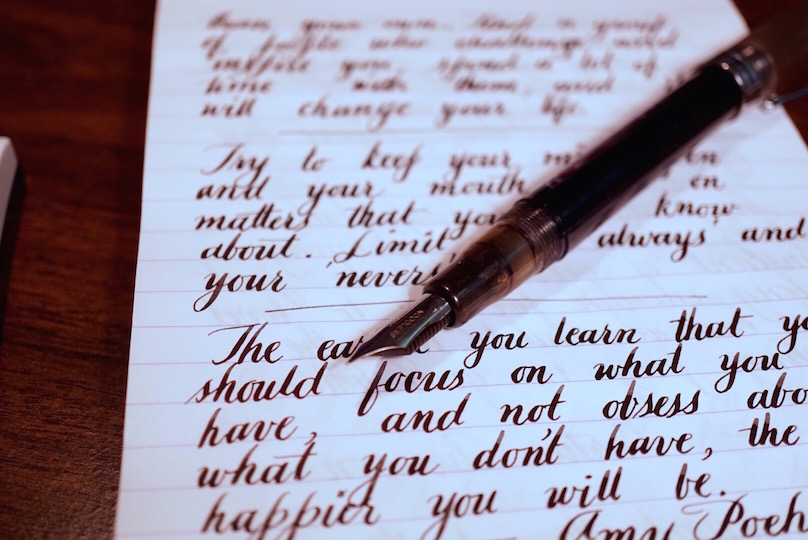 of people who challenge and
inspire you, spend a lot of
time with them, and it
will change your life.
Try to keep your m in
and your mouth on
matters that you know
about. Limit 'always' and
your 'nevers'
The ea you learn that yo
should focus on what you
have, and not obsess abo
what you don't have, the
happier you will be.
Amy Poeh